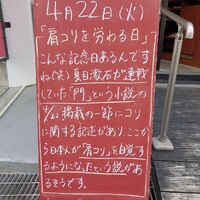 4月22日(火)
「肩コリを労わる日」
こんな記念日あるんです
ね(笑)夏目漱石が連載
していた「門」という小説の
4/22掲載の一節にコリ
に関する記述があり、ここか
ら日本人が「肩コリ」を自覚す
るようになったという説があ
るそうです。